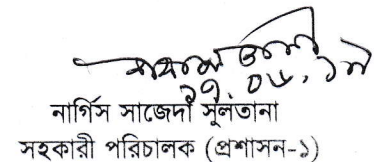 ২৭.০৮.১৭
নার্গিস সাজেদা সুলতানা
সহকারী পরিচালক (প্রশাসন-১)